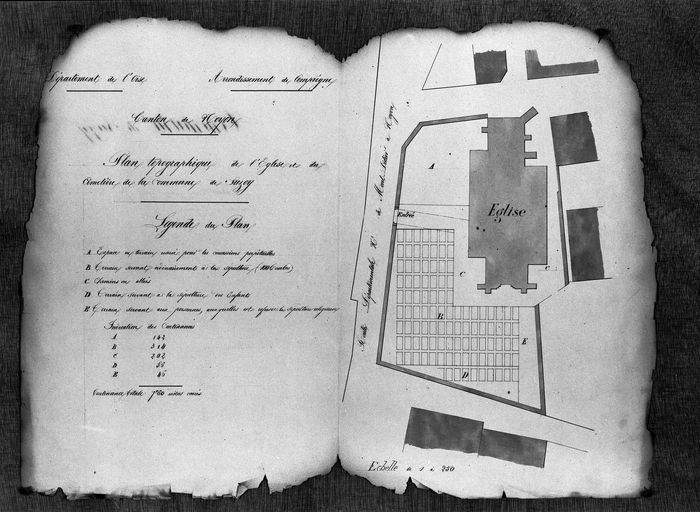 Département de l'Oise
Arrondissement de Compiègne
Canton de Noyon
Plan topographique de l'Eglise et du
Cimetière de la commune de Suzoy
Légende du Plan
A Espace ou terrain pour les concessions perpétuelles
B Terrain servant à la sépulture
C Chemins ou allées
D Terrain servant à la sépulture des Enfants
E Terrain servant aux personnes auxquelles est refusée la sépulture religieuse
Indication des Contenances
A 142
B 314
C 202
D 56
E 46
Contenance totale 760 mètres carrés
A
Entrée
Eglise
C
C
B
E
D
Route Départementale de Mont-Didier à Noyon
Echelle de 1 à 250